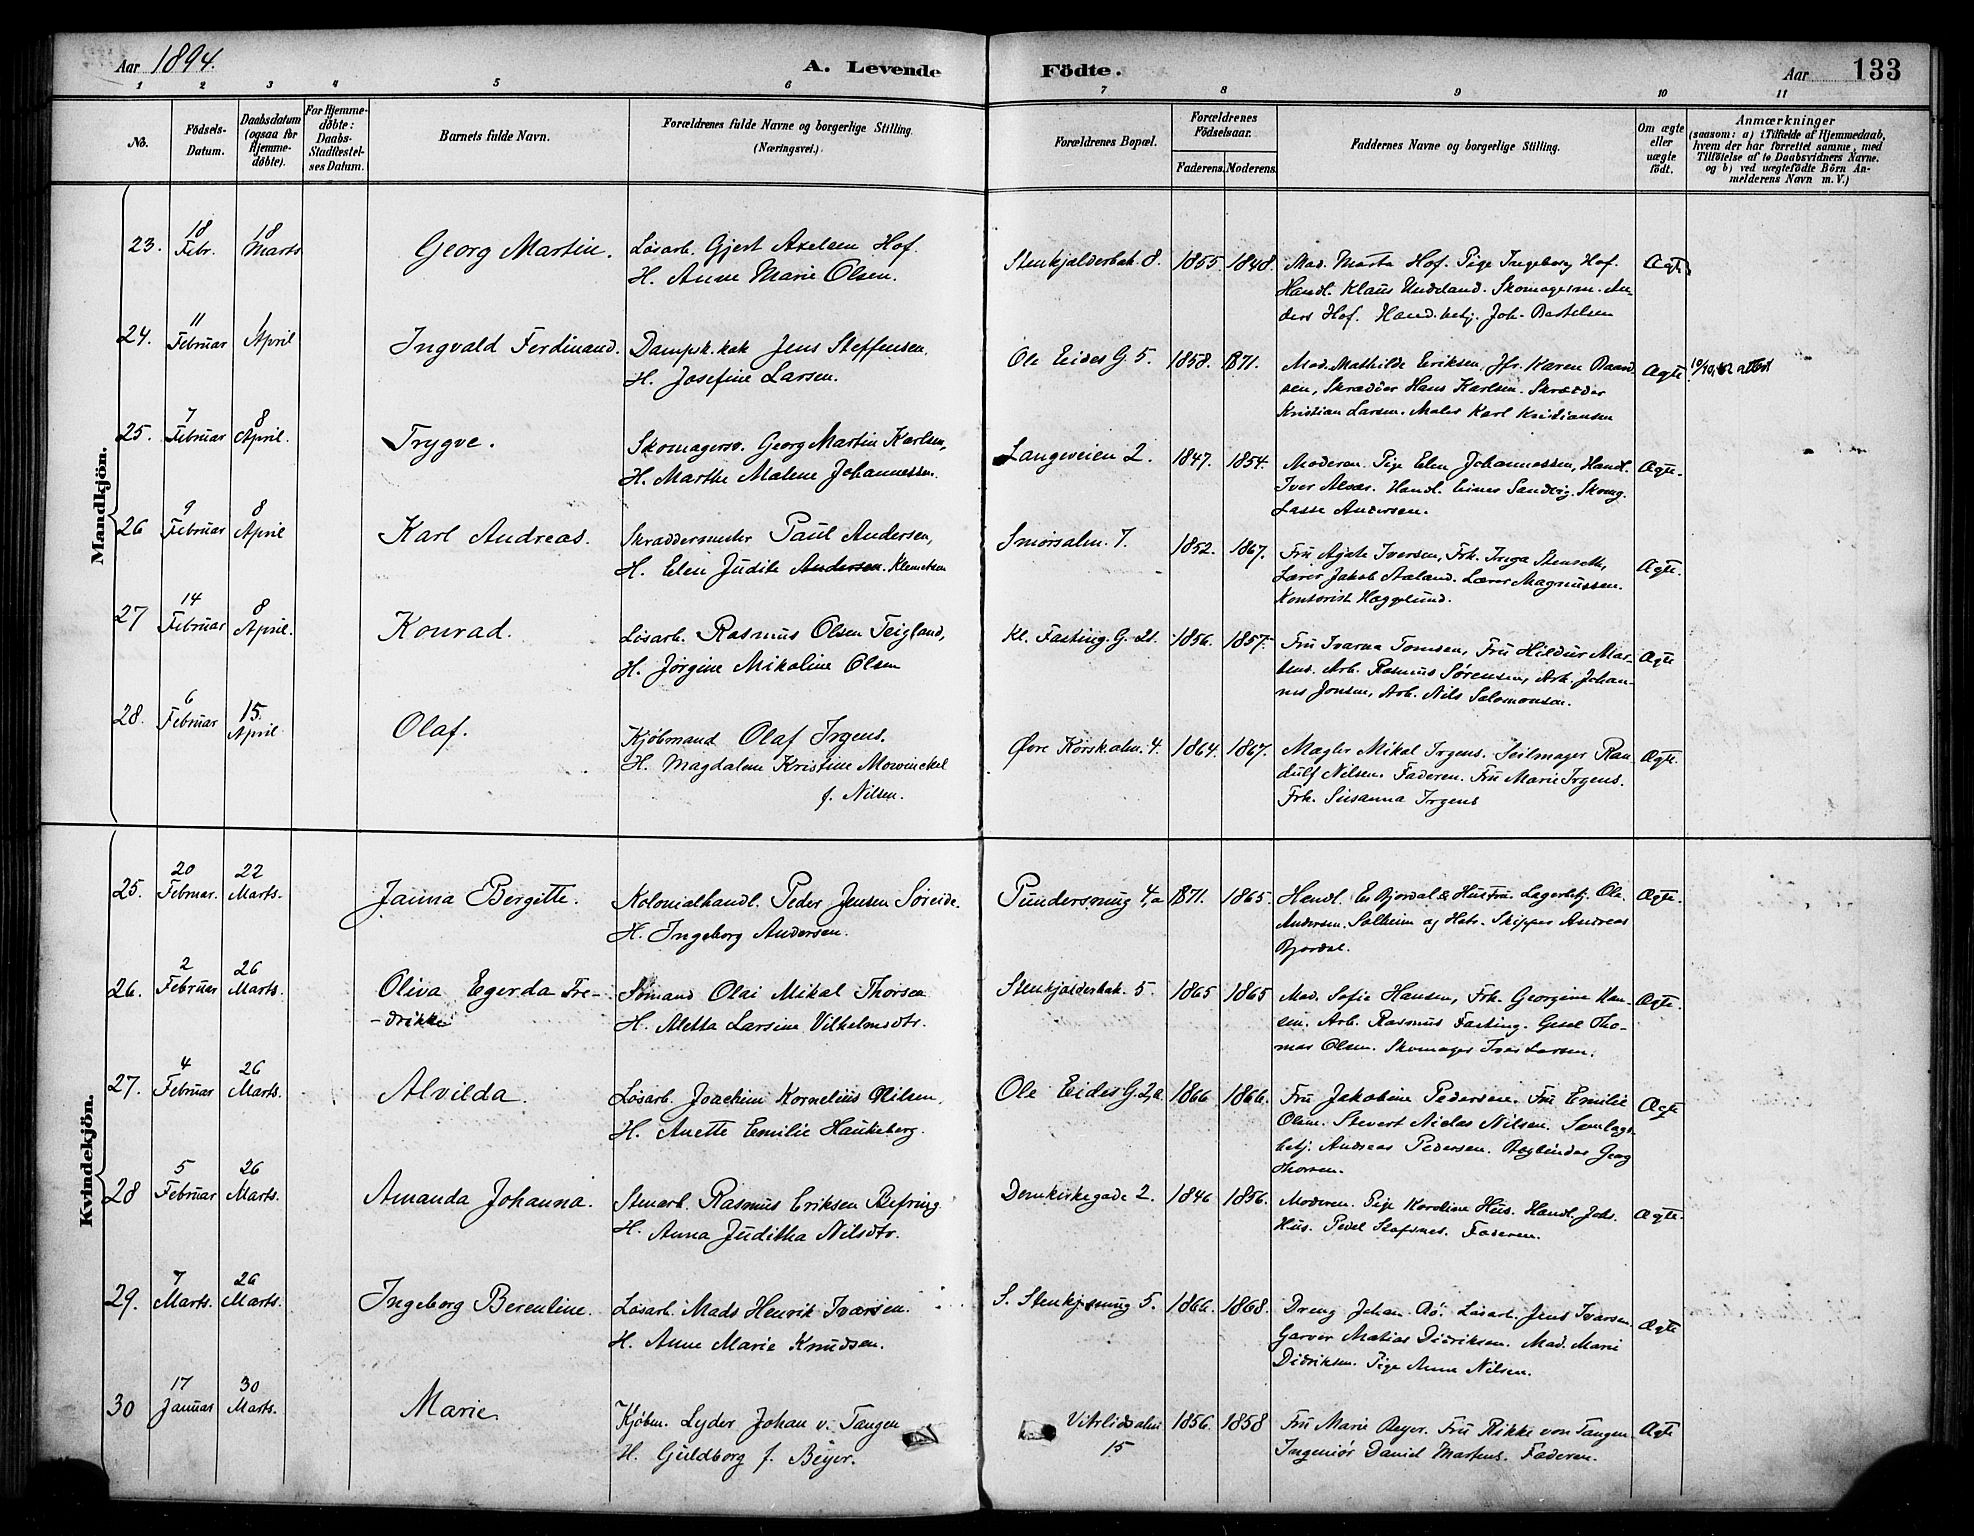 Aar 1894. A. Levende Födte. Aar 133
1 2 3 4 5 6 7 8 9 10 11
No.
Födsels-Datum.
Daabsdatum (ogsaa for Hjemme-døbte).
For Hjemme-døbte: Daabs-Stadfæstel-ses Datum.
Barnets fulde Navn.
Forældrenes fulde Navne og borgerlige Stilling. (Næringsvei.)
Forældrenes Bopæl.
Forældrenes Födselsaar.
Faderens. Moderens.
Faddernes Navne og borgerlige Stilling.
Om ægte eller uægte født.
Anmærkninger
(saasom: a) i Tilfælde af Hjemmedaab,
hvem der har forrettet samme, med
Tilföielse af to Daabsvidners Navne.
og b) ved uægtefödte Börn An-
melderens Navn m.V.)
Mandkjön.
23. 18 Febr. 18 Marts Georg Martin. Løsarb. Gjert Axelsen Hof. Stenkjælderbak. 8. 1855. 1848. Mad. Marta Hof. Pige Ingeborg Hof. Ægte
H. Anne Marie Olsen. Handl. Klaus Undeland. Skomagersv. An-
ders Hof. Hand.betj. Joh. Bertelsen
24. 11 Februar 1 April Ingvald Ferdinand. Dampsk.kok Jens Steffensen. Ole Eides G. 5. 1858. 1871. Mad. Mathilde Eriksen, Jfr. Karen Ægte.
H. Josefine Larsen. sen, Skrædder Hans Karlsen. Skrædder
Kristian Larsen. Maler Karl Kristiansen
25. 7 Februar 8 April. Trygve. Skomagersv. Georg Martin Karlsen, Langeveien 2. 1847. 1854. Moderen. Pige Elen Johannessen, Handl. Ægte.
H. Marthe Malene Johannessen. Iver Alsær. Handl. Einer Sandvig. Skomg.
Lasse Andersen.
26 9 Februar 8 April Karl Andreas. Skræddermester Paul Andersen, Smørsalm. 7. 1852. 1867. Fru Agate Iversen, Frk. Inga Stenseth, Ægte.
H. Elen Judite Andersen. Klemetsen Lærer Jakob Aaland. Lærer Magnussen.
Kontorist Hægglund.
27 14 Februar 8 April. Konrad. Løsarb. Rasmus Olsen Teigland, Kl. Fasting. G. 21. 1856. 1857. Fru Ivarna Tomsen, Fru Hildur Mar- Ægte
H. Jørgine Mikaline Olsen tens. Arb. Rasmus Sørensen, Arb. Johan-
nes Jonsen, Arb. Nils Salomonsen.
28. 6 Februar 15. April Olaf. Kjøbmand Olaf Irgens. Øvre Korskalm. 4. 1864. 1867. Mægler Mikal Irgens. Seilmager Ran Ægte.
H. Magdalene Kristine Mowinckel dulf Nilsen. Faderen. Fru Marie Irgens.
f. Nilsen. Frk. Susanna Irgens
Kvindekjön.
25. 20 Februar. 22 Marts. Janna Bergitte. Kolonialhandl. Peder Jensen Søreide. Pundersmug 4,a 1871. 1865. Handl. E. Bjordal & Hustru. Lagerbetj. Ole Ægte.
H. Ingeborg Andersen. Andersen Solheim og Hstr. Skipper Andreas
Bjordal.
26. 2 Februar 26 Marts. Oliva Egerda Fre- Sømand Olai Mikal Thorsen Stenkjælderbak. 5. 1865 1865 Mad. Sofie Hansen, Frk. Georgine Han- Ægte.
-drikke H. Aletta Larsine Vilhelmsdtr. sen. Arb. Rasmus Fasting. Gesel Tho-
mas Olsen. Skomager Iver Larsen.
27. 4 Februar 26 Marts. Alvilda. Løsarb. Joachim Kornelius Olilsen. Ole Eides G. 2,a 1866 1866. Fru Jakobine Pedersen. Fru Emilie Ægte
H. Anette Emilie Haukeberg. Olsen. Stevert Niclas Nilsen. Samlags-
betj. Andreas Pedersen. Bogbinder Georg
Thorsen.
28 5 Februar 26 Marts. Amanda Johanna. Stenarb. Rasmus Eriksen Befring. Domkirkegade 2. 1846 1856. Moderen. Pige Karoline Hus. Handl. Johs. Ægte.
H. Anna Juditha Nilsdtr. Hus. Peder Stafsnes. Faderen.
29. 7 Marts. 26 Marts. Ingeborg Berentine. Løsarb. Mads Henrik Iversen. S. Stenkj.smug 5. 1866. 1868. Dreng Johan Bø. Løsarb. Jens Ivarsen. Ægte
H. Anne Marie Knudsen. Garver Matias Didriksen. Mad. Marie
Didriksen. Pige Anna Nilsen.
30 17 Januar 30 Marts. Marie Kjøbm. Lyder Johan v. Tangen Vitrlidsalm 15 1856. 1858 Fru Marie Beyer. Fru Rikke von Tangen Ægte
H. Guldborg f. Beyer. Ingeniør Daniel Martens. Faderen.